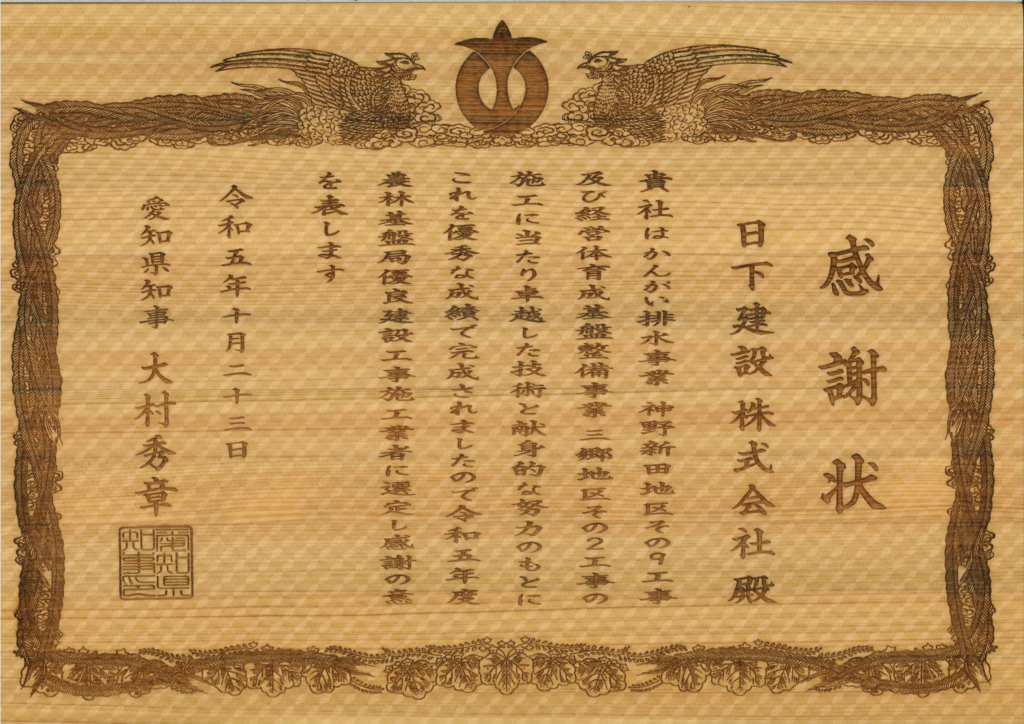 感謝状
日下建設株式会社殿
貴社はかんがい排水事業 神野新田地区その9工事
及び経営体育成基盤整備事業 三郷地区その2工事の
施工に当たり卓越した技術と献身的な努力のもとに
これを優秀な成績で完成されましたので令和五年度
農林基盤局優良建設工事施工業者に選定し感謝の意
を表します
令和五年十月二十三日
愛知県知事 大村秀章
愛知県
知事之印